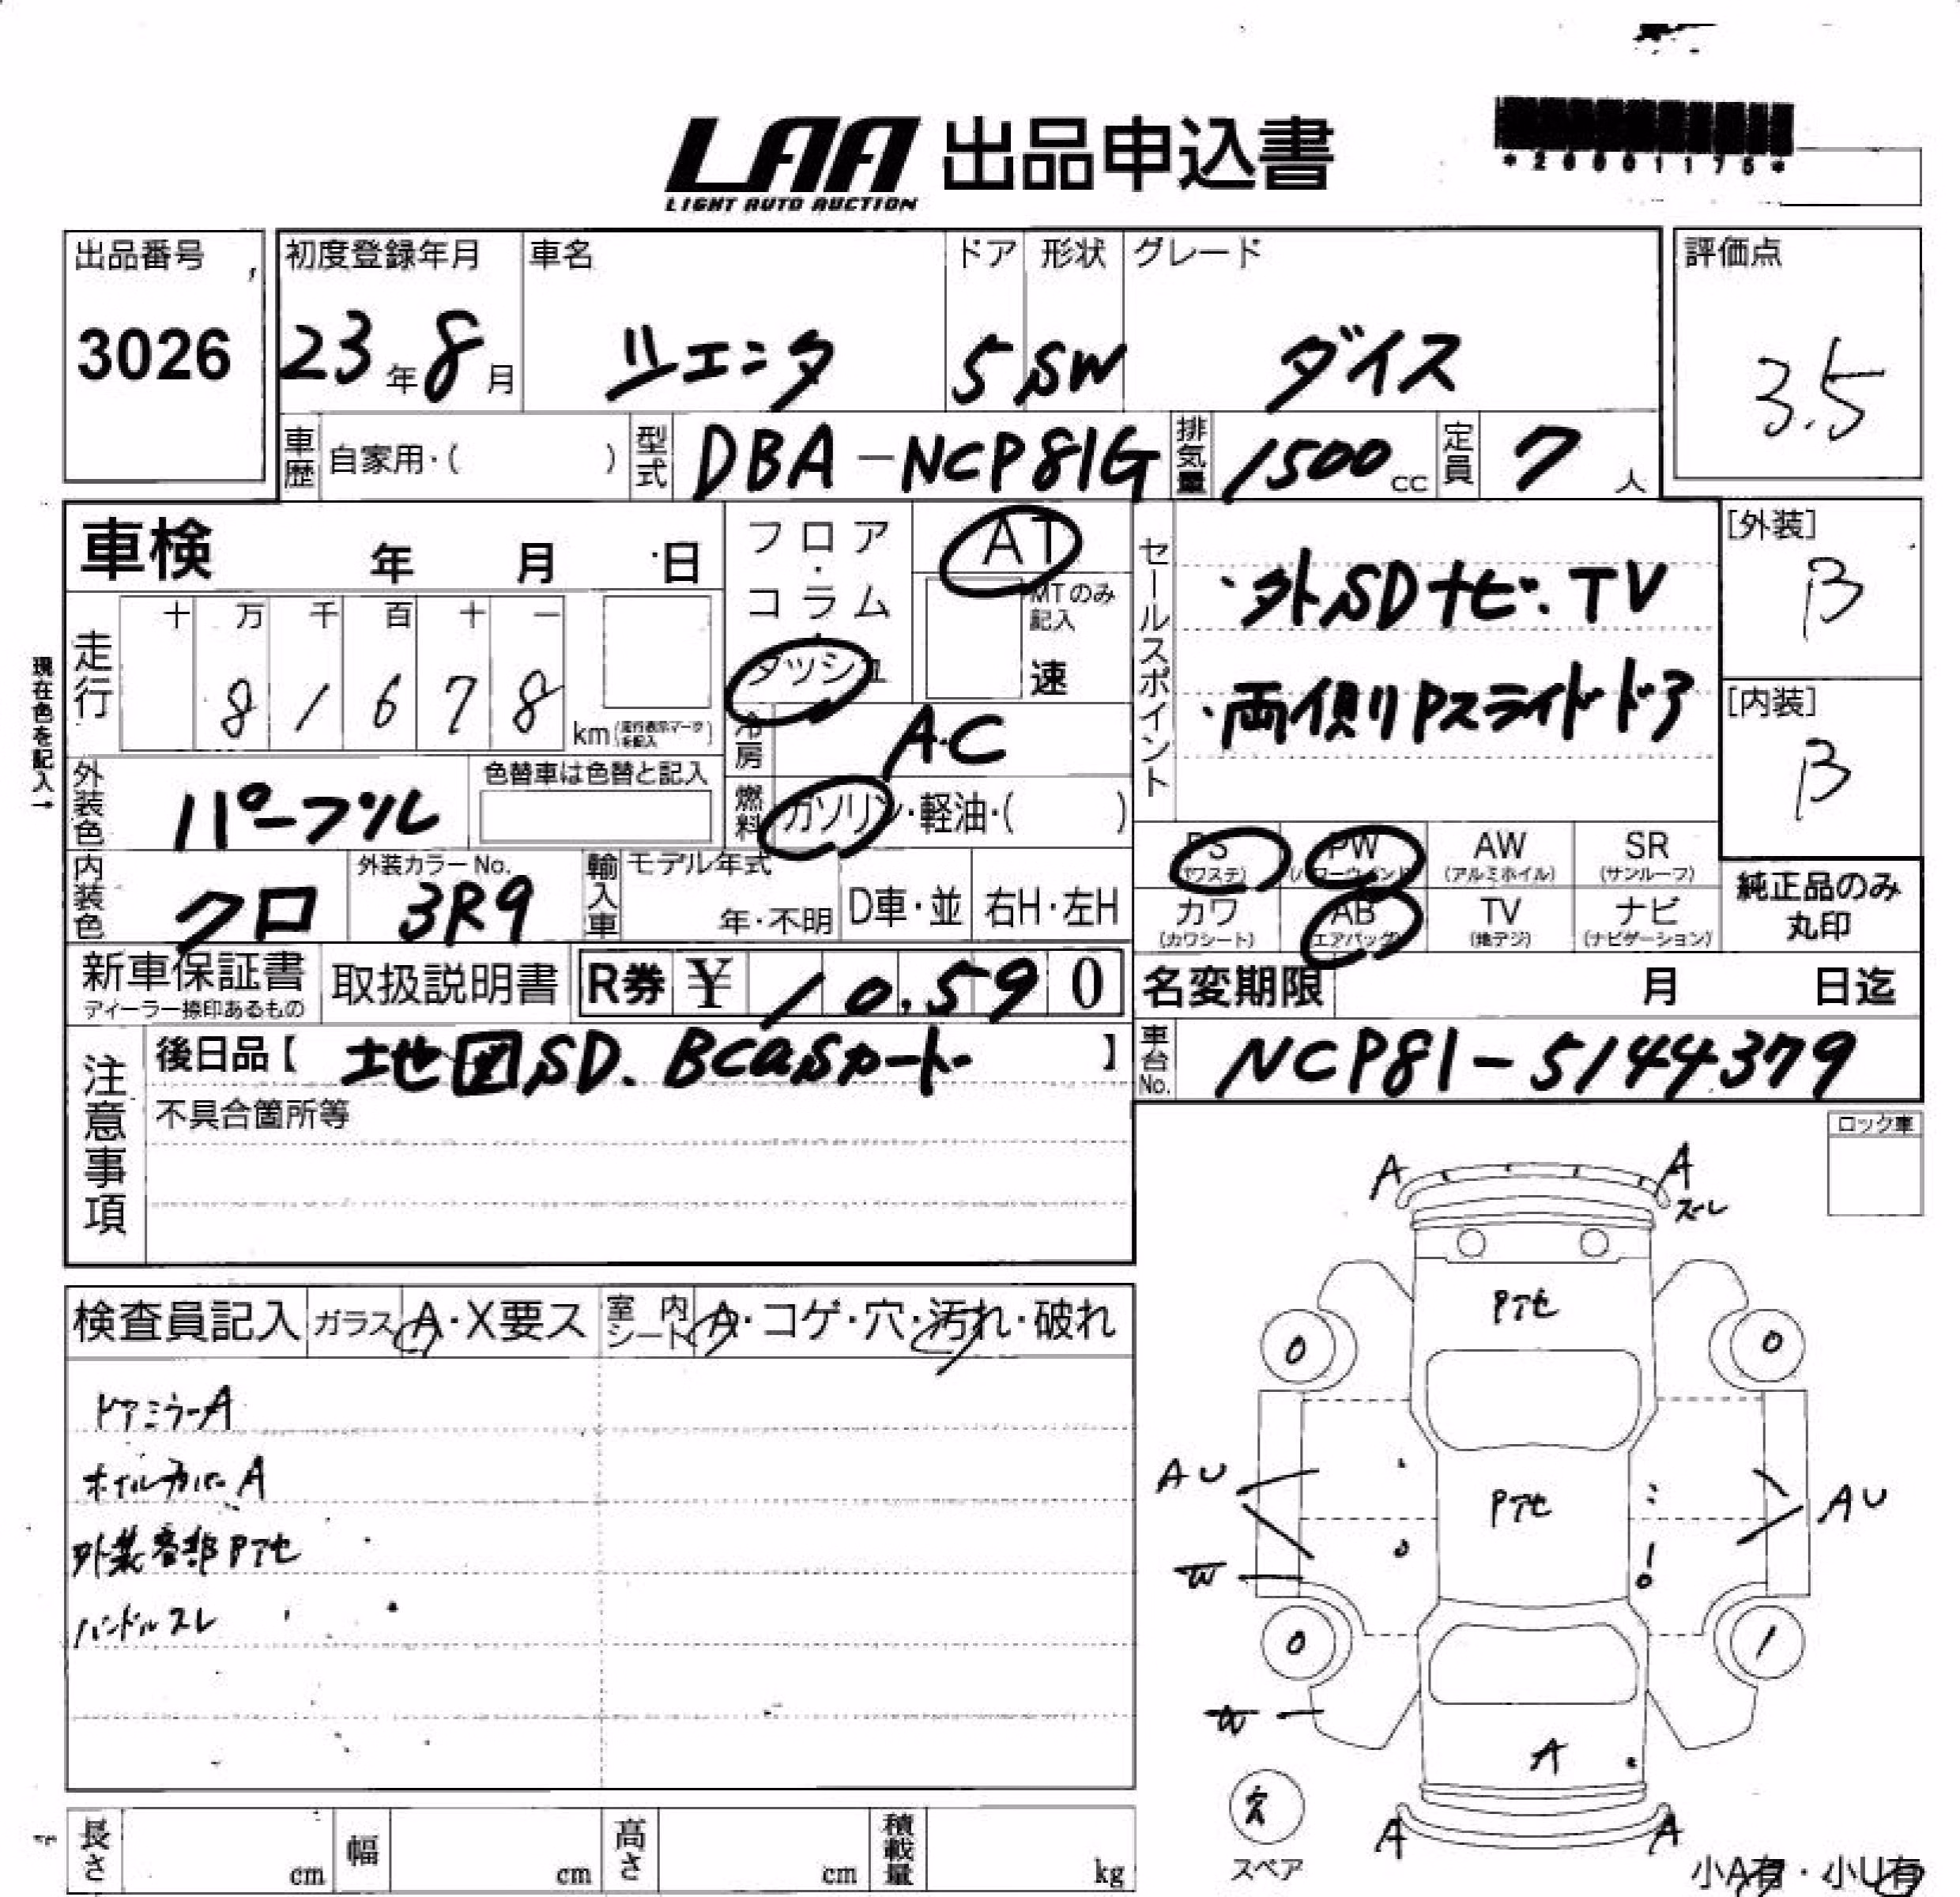 LAA 出品申込書
LIGHT AUTO AUCTION
*20001175*
出品番号 初度登録年月 車名 ドア 形状 グレード 評価点
3026 23年8月 シエンタ 5 SW ダイス 3.5
車歴 自家用・( ) 型式 DBA-NCP81G 排気量 1500cc 定員 7人
車検 年 月 日 フロア・コラム・ダッシュ AT MTのみ記入 速
セールスポイント
・外SDナビ.TV
・両側Pスライドドア
[外装] B
[内装] B
現在色を記入→
走行 十 万 千 百 十 一
8 1 6 7 8 km (走行表示マークを記入)
冷房 AC
外装色 パープル 色替車は色替と記入 燃料 ガソリン・軽油・( )
PS (パワステ) PW (パワーウインド) AW (アルミホイル) SR (サンルーフ)
カワ (カワシート) AB (エアバッグ) TV (地デジ) ナビ (ナビゲーション)
純正品のみ丸印
内装色 クロ 外装カラーNo. 3R9 輸入車 モデル年式 年・不明 D車・並 右H・左H
新車保証書 ディーラー捺印あるもの 取扱説明書 R券 ¥ 10,590 名変期限 月 日迄
注意事項 後日品【地図SD. BCasカード】 車台No. NCP81-5144379
不具合箇所等
ロック車
検査員記入 ガラス A・X要ス 室内シート A・コゲ・穴・汚れ・破れ
ドアミラーA
ホイルカバーA
外装各部Pアセ
ハンドルスレ
A A
ズレ
Pアセ
0 0
AU Pアセ AU
W
0 1
W
A
スペア
A A
小A有・小U有
長さ cm 幅 cm 高さ cm 積載量 kg